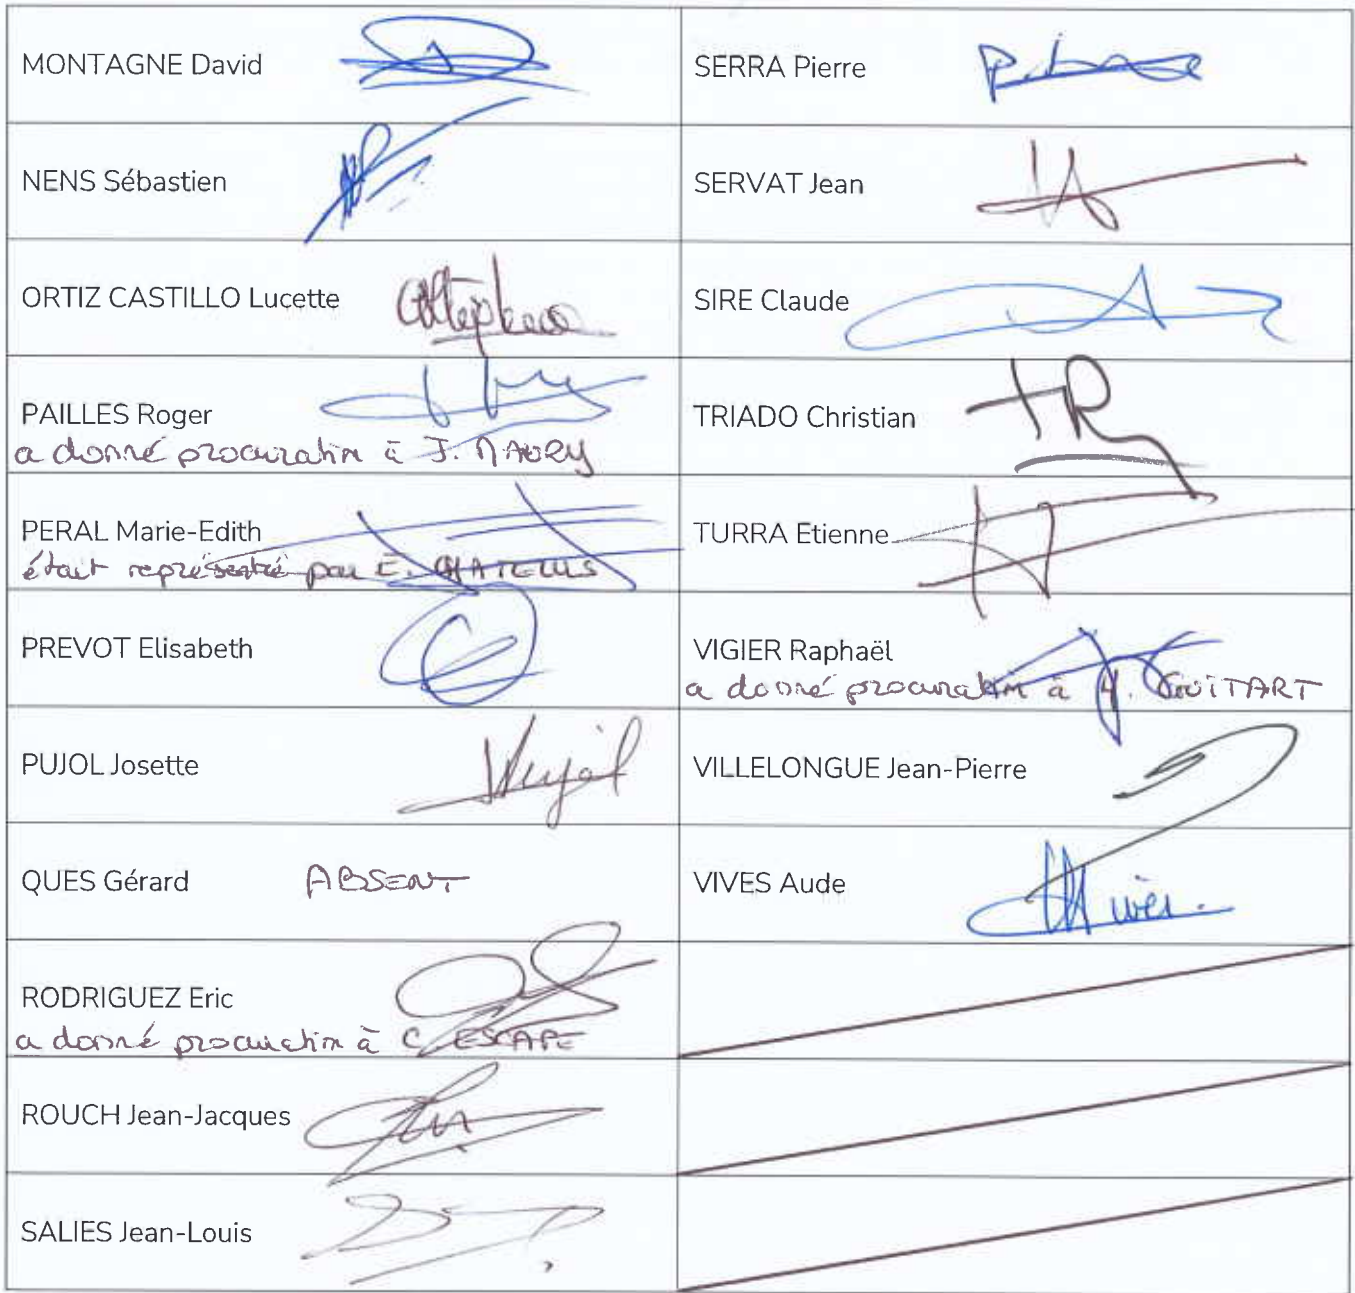 MONTAGNE David
SERRA Pierre
NENS Sébastien
SERVAT Jean
ORTIZ CASTILLO Lucette
SIRE Claude
PAILLES Roger
a donné procuration à J. MAURY
TRIADO Christian
TR
PERAL Marie-Edith
était représenté par E. CHATELUS
TURRA Etienne
PREVOT Elisabeth
VIGIER Raphaël
a donné procuration à GUITART
PUJOL Josette
Pujol
VILLELONGUE Jean-Pierre
QUES Gérard ABSENT
VIVES Aude
RODRIGUEZ Eric
a donné procuration à C. ESCAPE
ROUCH Jean-Jacques
SALIES Jean-Louis